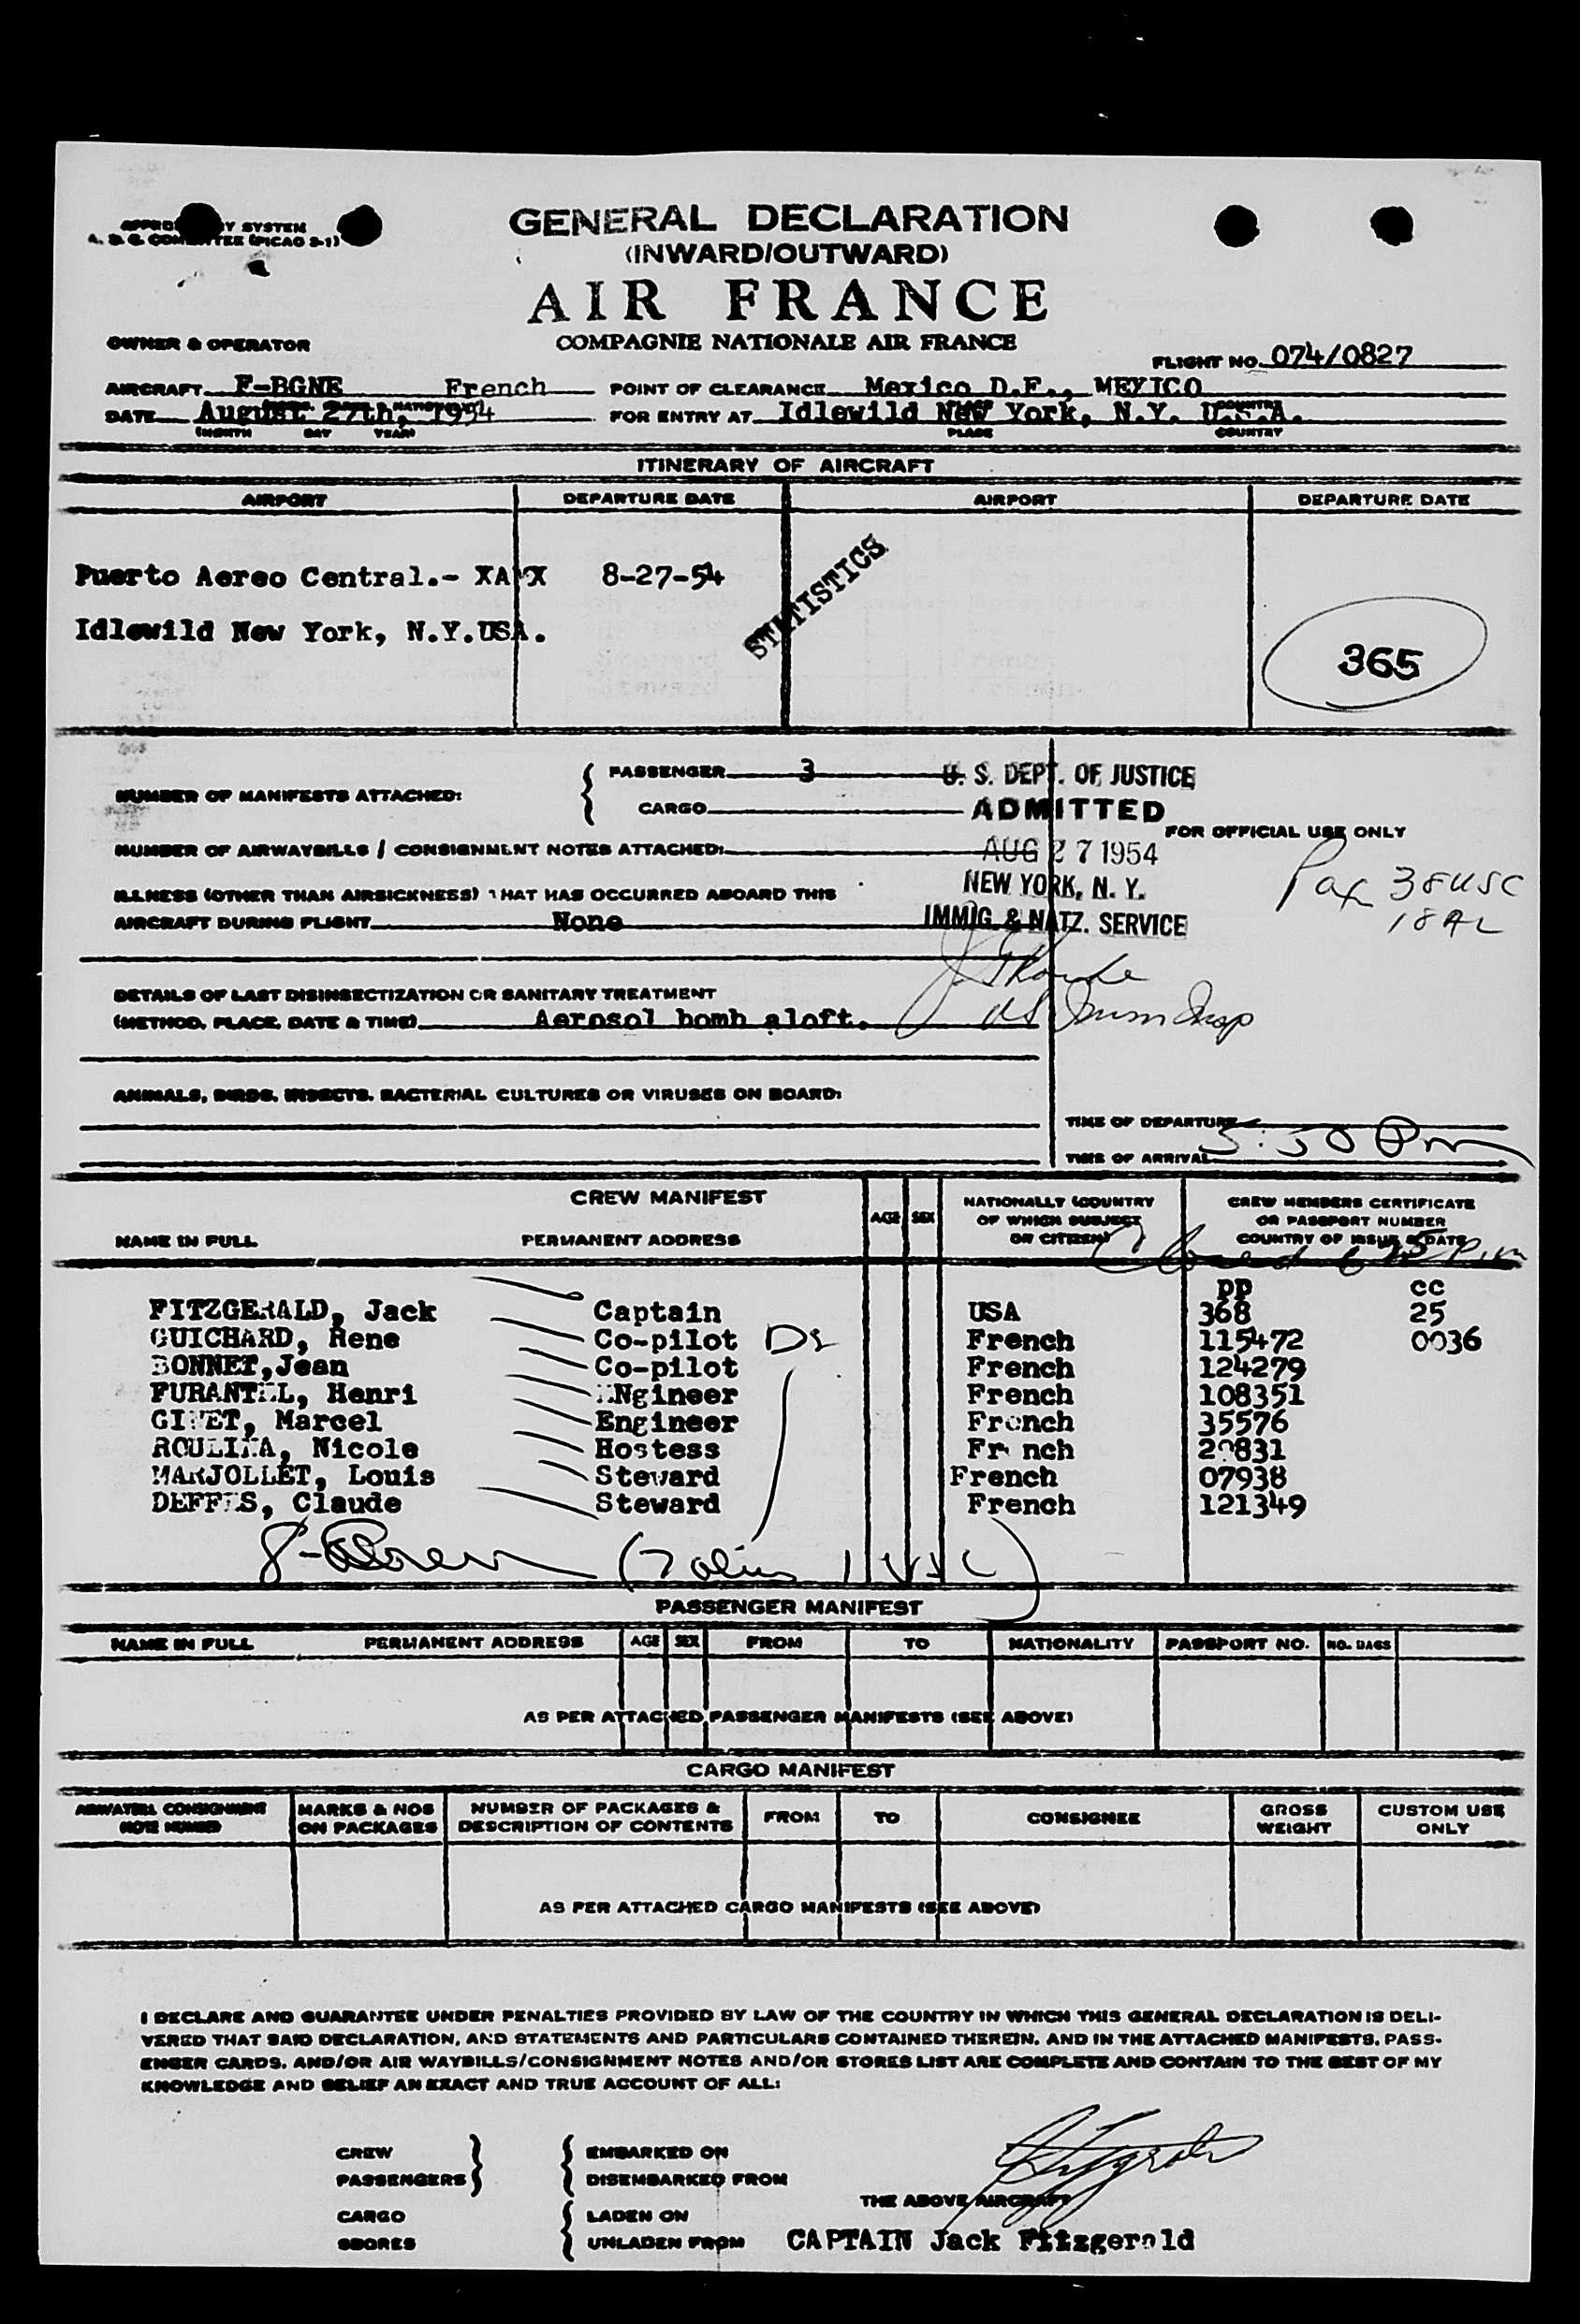 GENERAL DECLARATION
(INWARD/OUTWARD)
AIR FRANCE
COMPAGNIE NATIONALE AIR FRANCE
Y SYSTEM
(PICAO 2-1)
OWNER & OPERATOR
FLIGHT NO. 074/0827
AIRCRAFT F-BGNE French POINT OF CLEARANCE Mexico D.F., MEXICO
DATE August 27th, 1954 FOR ENTRY AT Idlewild New York, N.Y. U.S.A.
(MONTH DAY YEAR) PLACE COUNTRY
ITINERARY OF AIRCRAFT
AIRPORT DEPARTURE DATE AIRPORT DEPARTURE DATE
Puerto Aereo Central.- 8-27-54
STATISTICS
Idlewild New York, N.Y.USA.
365
NUMBER OF MANIFESTS ATTACHED: PASSENGER 3
CARGO
U. S. DEPT. OF JUSTICE
ADMITTED
AUG 27 1954
NEW YORK, N. Y.
IMMIG. & NATZ. SERVICE
FOR OFFICIAL USE ONLY
Pax 38 USC
18 AL
NUMBER OF AIRWAYBILLS / CONSIGNMENT NOTES ATTACHED:
ILLNESS (OTHER THAN AIRSICKNESS) THAT HAS OCCURRED ABOARD THIS
AIRCRAFT DURING FLIGHT None
US Imm Insp
DETAILS OF LAST DISINSECTIZATION OR SANITARY TREATMENT
(METHOD, PLACE, DATE & TIME) Aerosol bomb aloft.
ANIMALS, BIRDS, INSECTS, BACTERIAL CULTURES OR VIRUSES ON BOARD:
TIME OF DEPARTURE
TIME OF ARRIVAL 5:50 Pm
CREW MANIFEST
NAME IN FULL PERMANENT ADDRESS AGE SEX NATIONALLY (COUNTRY OF WHICH SUBJECT OR CITIZEN) CREW MEMBERS CERTIFICATE OR PASSPORT NUMBER COUNTRY OF ISSUE & DATE
pp cc
FITZGERALD, Jack Captain USA 368 25
GUICHARD, Rene Co-pilot French 115472 0036
BONNET,Jean Co-pilot French 124279
FURANTEL, Henri ENgineer French 108351
Marcel Engineer French 35576
Nicole Hostess French
MARJOLLET, Louis Steward French 07938
DEFFES, Claude Steward French 121349
PASSENGER MANIFEST
NAME IN FULL PERMANENT ADDRESS AGE SEX FROM TO NATIONALITY PASSPORT NO. NO. BAGS
AS PER ATTACHED PASSENGER MANIFESTS (SEE ABOVE)
CARGO MANIFEST
AIRWAYBILL CONSIGNMENT NOTE NUMBER MARKS & NOS ON PACKAGES NUMBER OF PACKAGES & DESCRIPTION OF CONTENTS FROM TO CONSIGNEE GROSS WEIGHT CUSTOM USE ONLY
AS PER ATTACHED CARGO MANIFESTS (SEE ABOVE)
I DECLARE AND GUARANTEE UNDER PENALTIES PROVIDED BY LAW OF THE COUNTRY IN WHICH THIS GENERAL DECLARATION IS DELI-
VERED THAT SAID DECLARATION, AND STATEMENTS AND PARTICULARS CONTAINED THEREIN, AND IN THE ATTACHED MANIFESTS, PASS-
ENGER CARDS, AND/OR AIR WAYBILLS/CONSIGNMENT NOTES AND/OR STORES LIST ARE COMPLETE AND CONTAIN TO THE BEST OF MY
KNOWLEDGE AND BELIEF AN EXACT AND TRUE ACCOUNT OF ALL:
CREW EMBARKED ON
PASSENGERS DISEMBARKED FROM
THE ABOVE AIRCRAFT
CARGO LADEN ON
STORES UNLADEN FROM CAPTAIN Jack Fitzgerald